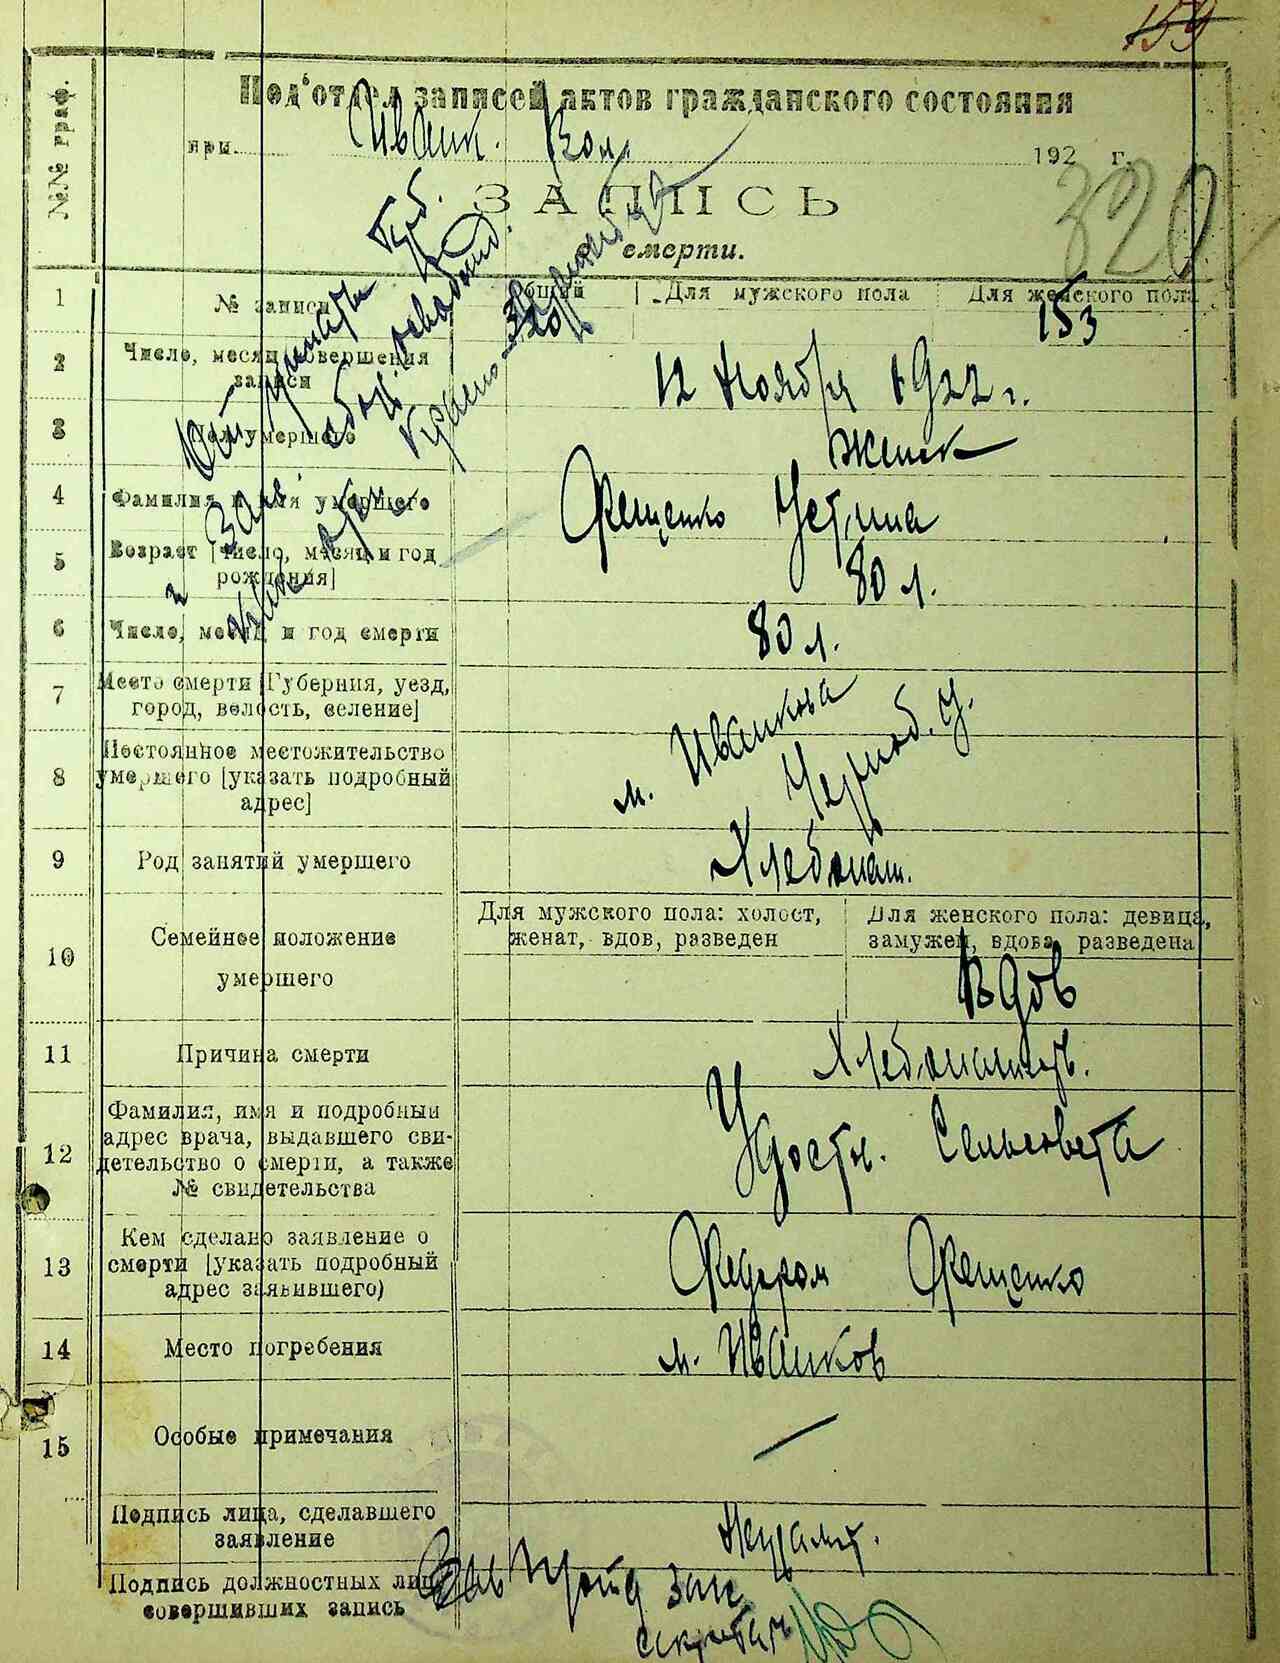 159
№№ граф.
Под'отдел записей актов гражданского состояния
при Иванк. Вол. 192 г.
320
ЗАПИСЬ
смерти.
1 № записи Общий Для мужского пола Для женского пола
320 153
2 Число, месяц совершения записи 12 Ноября 1922 г.
3 Пол умершего Женск
4 Фамилия и имя умершего Фещенко Устина
5 Возраст [число, месяц и год рождения] 80 л.
6 Число, месяц и год смерти 80 л.
7 Место смерти [Губерния, уезд, город, волость, селение]
м. Иванкова
Черноб. У.
8 Постоянное местожительство умершего [указать подробный адрес]
9 Род занятий умершего Хлебопаш.
10 Семейное положение умершего
Для мужского пола: холост, женат, вдов, разведен
Для женского пола: девица, замужем, вдова, разведена
Вдов
11 Причина смерти Хлебопашеств.
12 Фамилия, имя и подробный адрес врача, выдавшего свидетельство о смерти, а также № свидетельства
Удост. Сельсовета
13 Кем сделано заявление о смерти [указать подробный адрес заявившего) Федором Фещенко
14 Место погребения м. Иванков
15 Особые примечания —
Подпись лица, сделавшего заявление Неграмот.
Подпись должностных лиц, совершивших запись Зав
секретарь